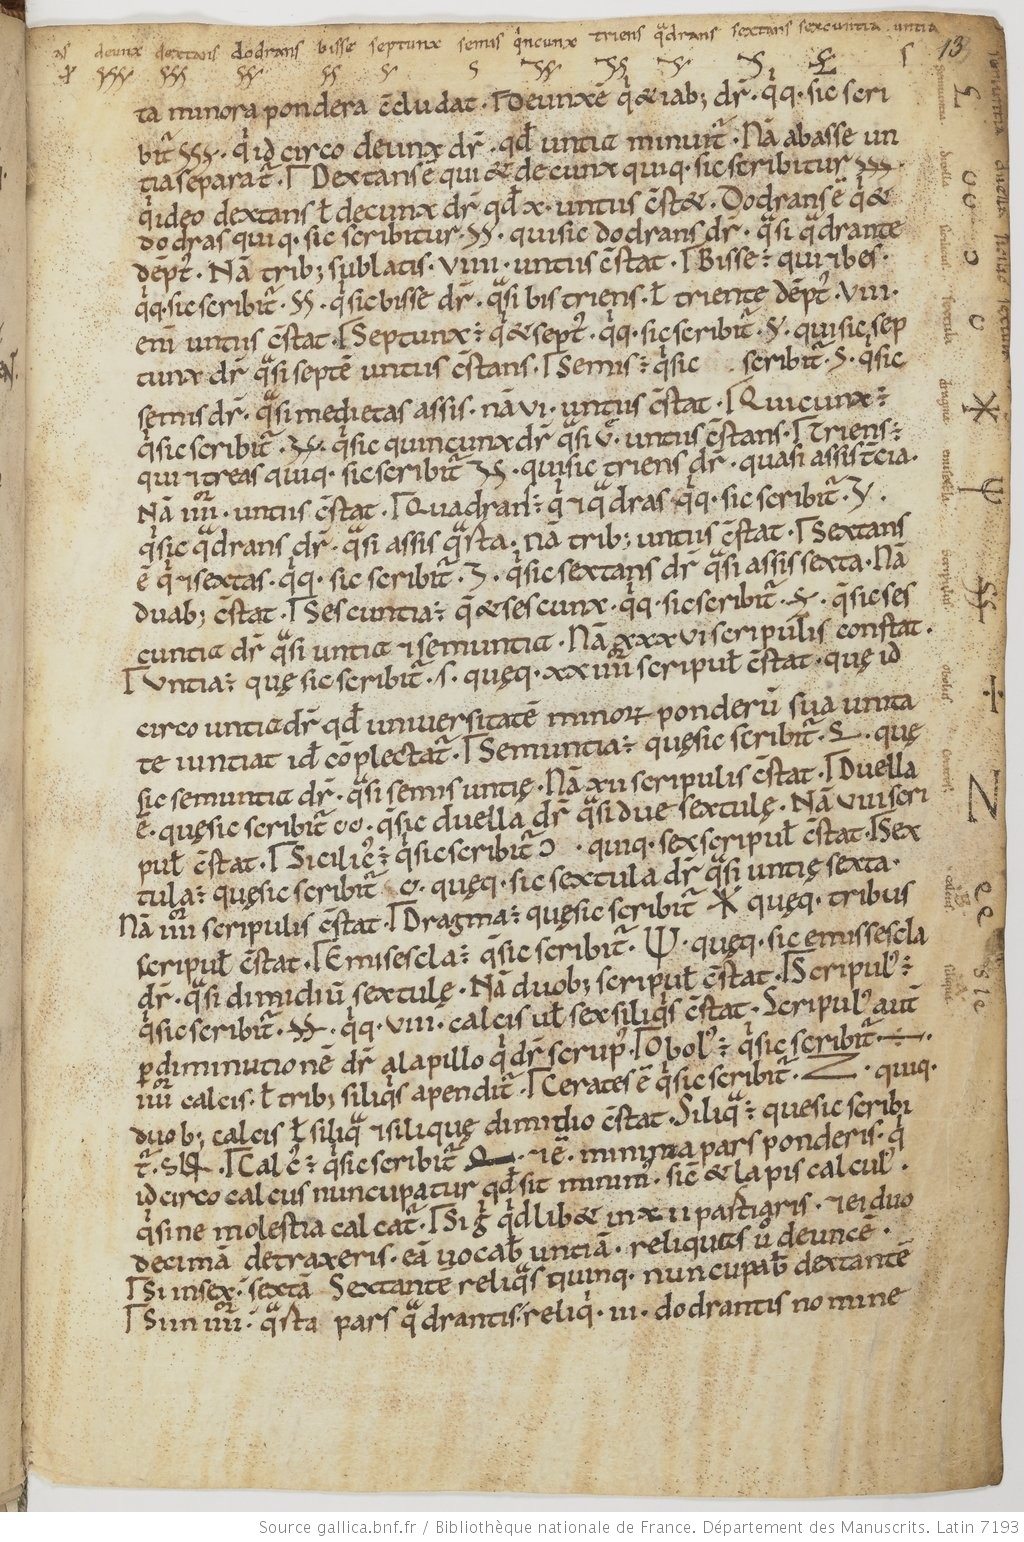 as deunx dextans dodrans bisse septunx semis qincunx triens qadrans sextans sexcuntia untia
13
ta minora pondera c̄cludat. Deunxē q̄ & iab; dr̄. q̄q. sic scri
bit᷑ 𐆒𐆒𐆒. q̇ idcirco deunx dr̄. qđ untia minuit᷑. Nā abasse un
tia separat᷑. Dextans ē qui & decunx quiq. sic scribitur
q̇ ideo dextans ł decunx dr̄ qđ x. untiis c̄st&. Dodrans ē q̇ &
dodras quiq. sic scribitur. SS. quisic dodrans dr̄. qͣsi qͣdrante
dēpt᷒. Nā trib; sublatis. VIIII. untiis c̄stat. Bisse÷ qui ⁊ bes.
q̇q. sic scribit᷑. SS. q̇ sic bisse dr̄. qͣsi bis triens. ł triente dēpt᷒. VIII.
enī untiis c̄stat. Septunx÷ q̇ & sept᷒. q̇q. sic scribit᷑. S. qui sic sep
tunx dr̄ qͣsi septē untiis c̄stans. Semis÷ q̇ sic scribit᷑. S. q̇ sic
semis dr̄. qͣsi medietas assis. nā VI. untiis c̄stat. Quicunx÷
q̇ sic scribit᷑. q̇ sic quincunx dr̄ qͣsi V. untiis c̄stans. Triens÷
qui ⁊ treas quiq. sic scribit᷑. quisic triens dr̄. quasi assis t̄cia.
Nā IIIIor. untiis c̄stat. Quadran÷ q̇ ⁊ qͣdras q̇q. sic scribit᷑.
q̇ sic qͣdrans dr̄. qͣsi assis qͣrta. nā trib; untiis c̄stat. Sextans
ē q̇ ⁊ sextas. q̇q. sic scribit᷑. q̇ sic sextans dr̄ qͣsi assis sexta. Nā
duab; c̄stat. Sescuntia÷ q̄ & sescunx. q̇q. sic scribit᷑. q̄ sic ses
cuntia dr̄ qͣsi untia ⁊ semuntia. Nā xxxvi scripulis constat.
Untia÷ quę sic scribit᷑. s. quęq. xxIIIIor scripuł c̄stat. quę id
circo untia dr̄ qđ universitatē minorꝝ ponderū sua unita
te iuntiat idł cōplectat᷑. Semuntia÷ quęsic scribit᷑. quę
sic semuntia dr̄. qͣsi semis untię. Nā xii scripulis c̄stat. Duella
ē. quęsic scribit᷑. q̄ sic duella dr̄ qͣsi due sextulę. Nā VIII scri
puł c̄stat. Sicilic᷒÷ q̇ sic scribit᷑ Ɔ. quiq. sex scripuł c̄stat. Sex
tula÷ quęsic scribit᷑. quęq. sic sextula dr̄ qͣsi untię sexta.
Nā IIIIor scripulis c̄stat. Dragma÷ quęsic scribit᷑ quęq. tribus
scripuł c̄stat. Emisescla÷ q̄ sic scribit᷑. Ψ. quęq. sic emissescla
dr̄. qͣsi dimidiū sextulę. Nā duob; scripuł c̄stat. Scripul᷒÷
q̇ sic scribit᷑. q̇q. VIII. calcis uł sex siliqͣs c̄stat. Scripul᷒ aut̄
ꝑ diminutionē dr̄ a lapillo q̇ dr̄ scrup᷒. Obol᷒÷ q̇ sic scribit᷑.
IIIIor calcis. ł trib; siliqͣs apendit᷑. Cerates ē q̇ sic scribit᷑. Z. quiq.
duob; calcis ł siliqͣ ⁊ siliquę dimidio c̄stat. Siliqͣ÷ quesic scribi
t᷑. Calc᷒÷ q̇ sic scribit᷑. ⁊ ē. minima pars ponderis. q̇
idcirco calcus nuncupatur qđ sit minim᷒. sic̄ & lapis calcul᷒.
q̇ sine molestia calcat᷑. Si ḡ q̇dlib& in xii partiaris. ⁊ ei duo
decimā detraxeris. eā vocab̄ untiā. reliquas ū deuncē.
Si in sex. sextā Sextante reliqͣs quinq. nuncupab̄ dextantē
Si in IIIIor. qͣrta pars qͣdrantis. reliq̄. III. dodrantis nomine
Source gallica.bnf.fr / Bibliothèque nationale de France. Département des Manuscrits. Latin 7193